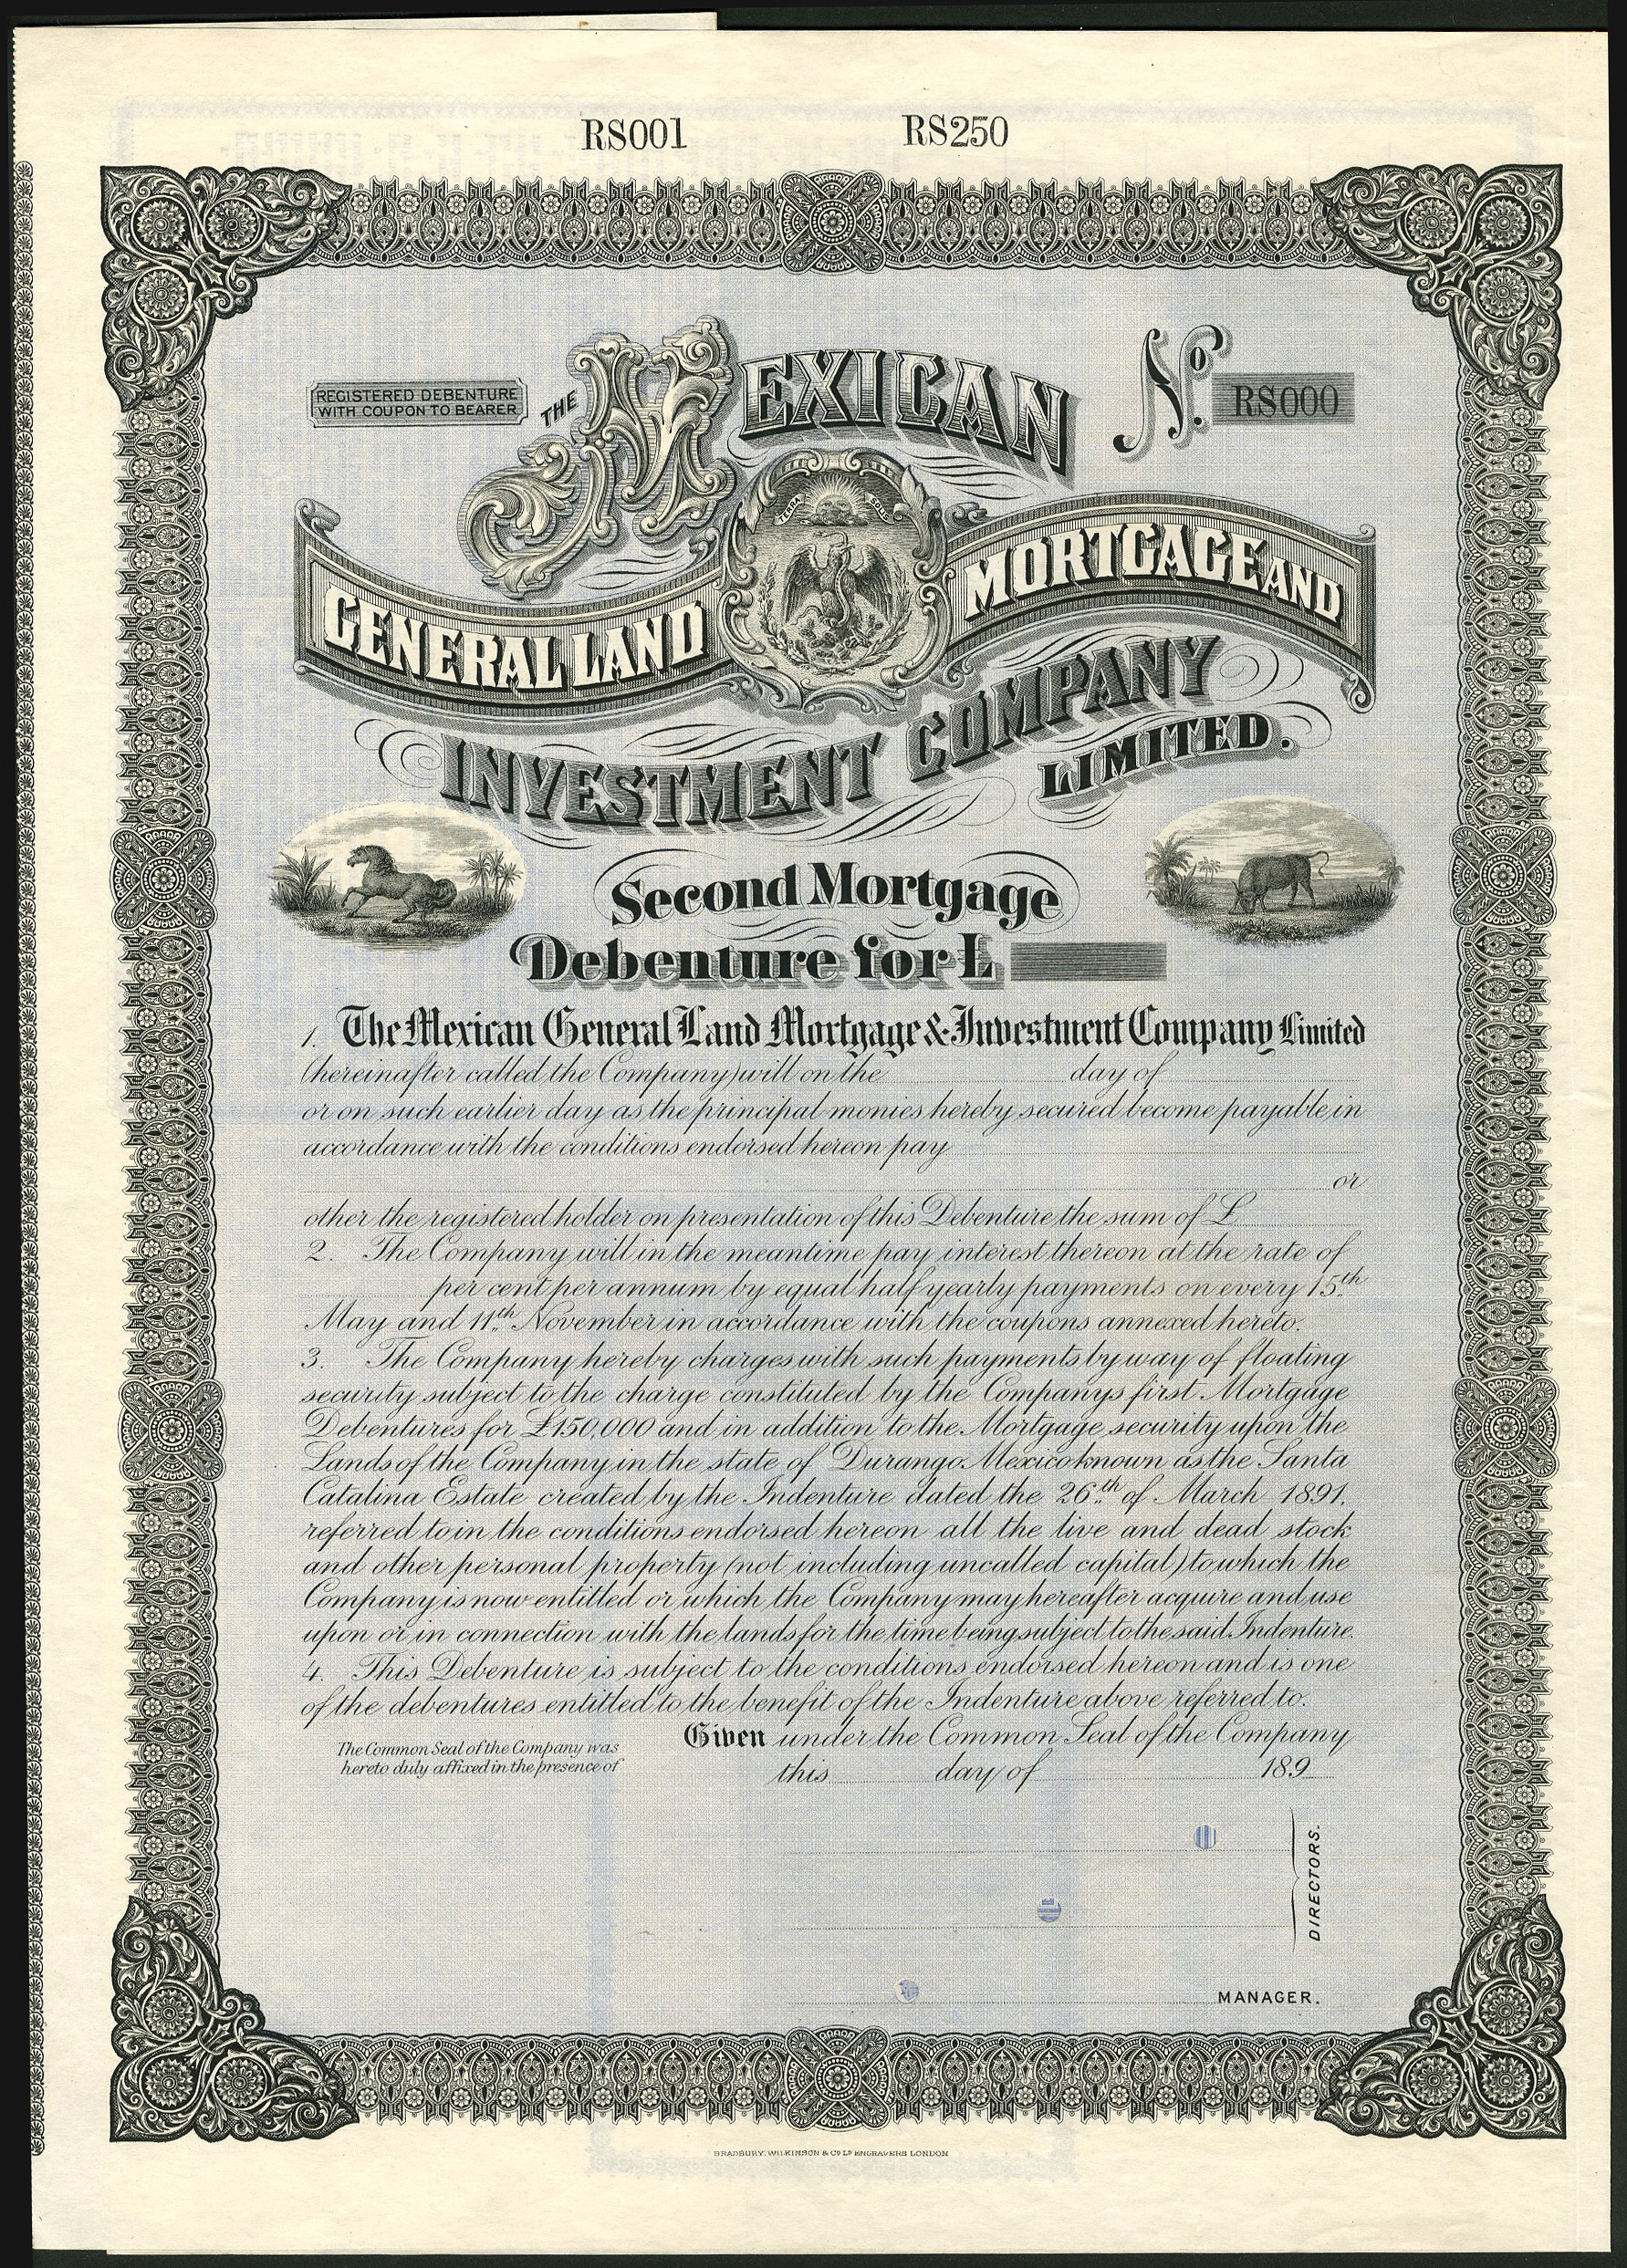 RS001 RS250
REGISTERED DEBENTURE
WITH COUPON TO BEARER
THE MEXICAN
No. RS000
TERRA SOL
GENERAL LAND MORTGAGE AND
INVESTMENT COMPANY
LIMITED.
Second Mortgage
Debenture for £
1. The Mexican General Land Mortgage & Investment Company Limited
(hereinafter called the Company) will on the day of
or on such earlier day as the principal monies hereby secured become payable in
accordance with the conditions endorsed hereon pay
or
other the registered holder on presentation of this Debenture the sum of £
2. The Company will in the meantime pay interest thereon at the rate of
per cent per annum by equal half yearly payments on every 15th
May and 11th November in accordance with the coupons annexed hereto.
3. The Company hereby charges with such payments by way of floating
security subject to the charge constituted by the Companys first Mortgage
Debentures for £150,000 and in addition to the Mortgage security upon the
Lands of the Company in the state of Durango Mexico known as the Santa
Catalina Estate created by the Indenture dated the 26th of March 1891,
referred to in the conditions endorsed hereon all the live and dead stock
and other personal property (not including uncalled capital) to which the
Company is now entitled or which the Company may hereafter acquire and use
upon or in connection with the lands for the time being subject to the said Indenture.
4. This Debenture is subject to the conditions endorsed hereon and is one
of the debentures entitled to the benefit of the Indenture above referred to.
Given under the Common Seal of the Company
this day of 189
The Common Seal of the Company was
hereto duly affixed in the presence of
DIRECTORS.
MANAGER.
BRADBURY, WILKINSON & Co. Ld. ENGRAVERS LONDON